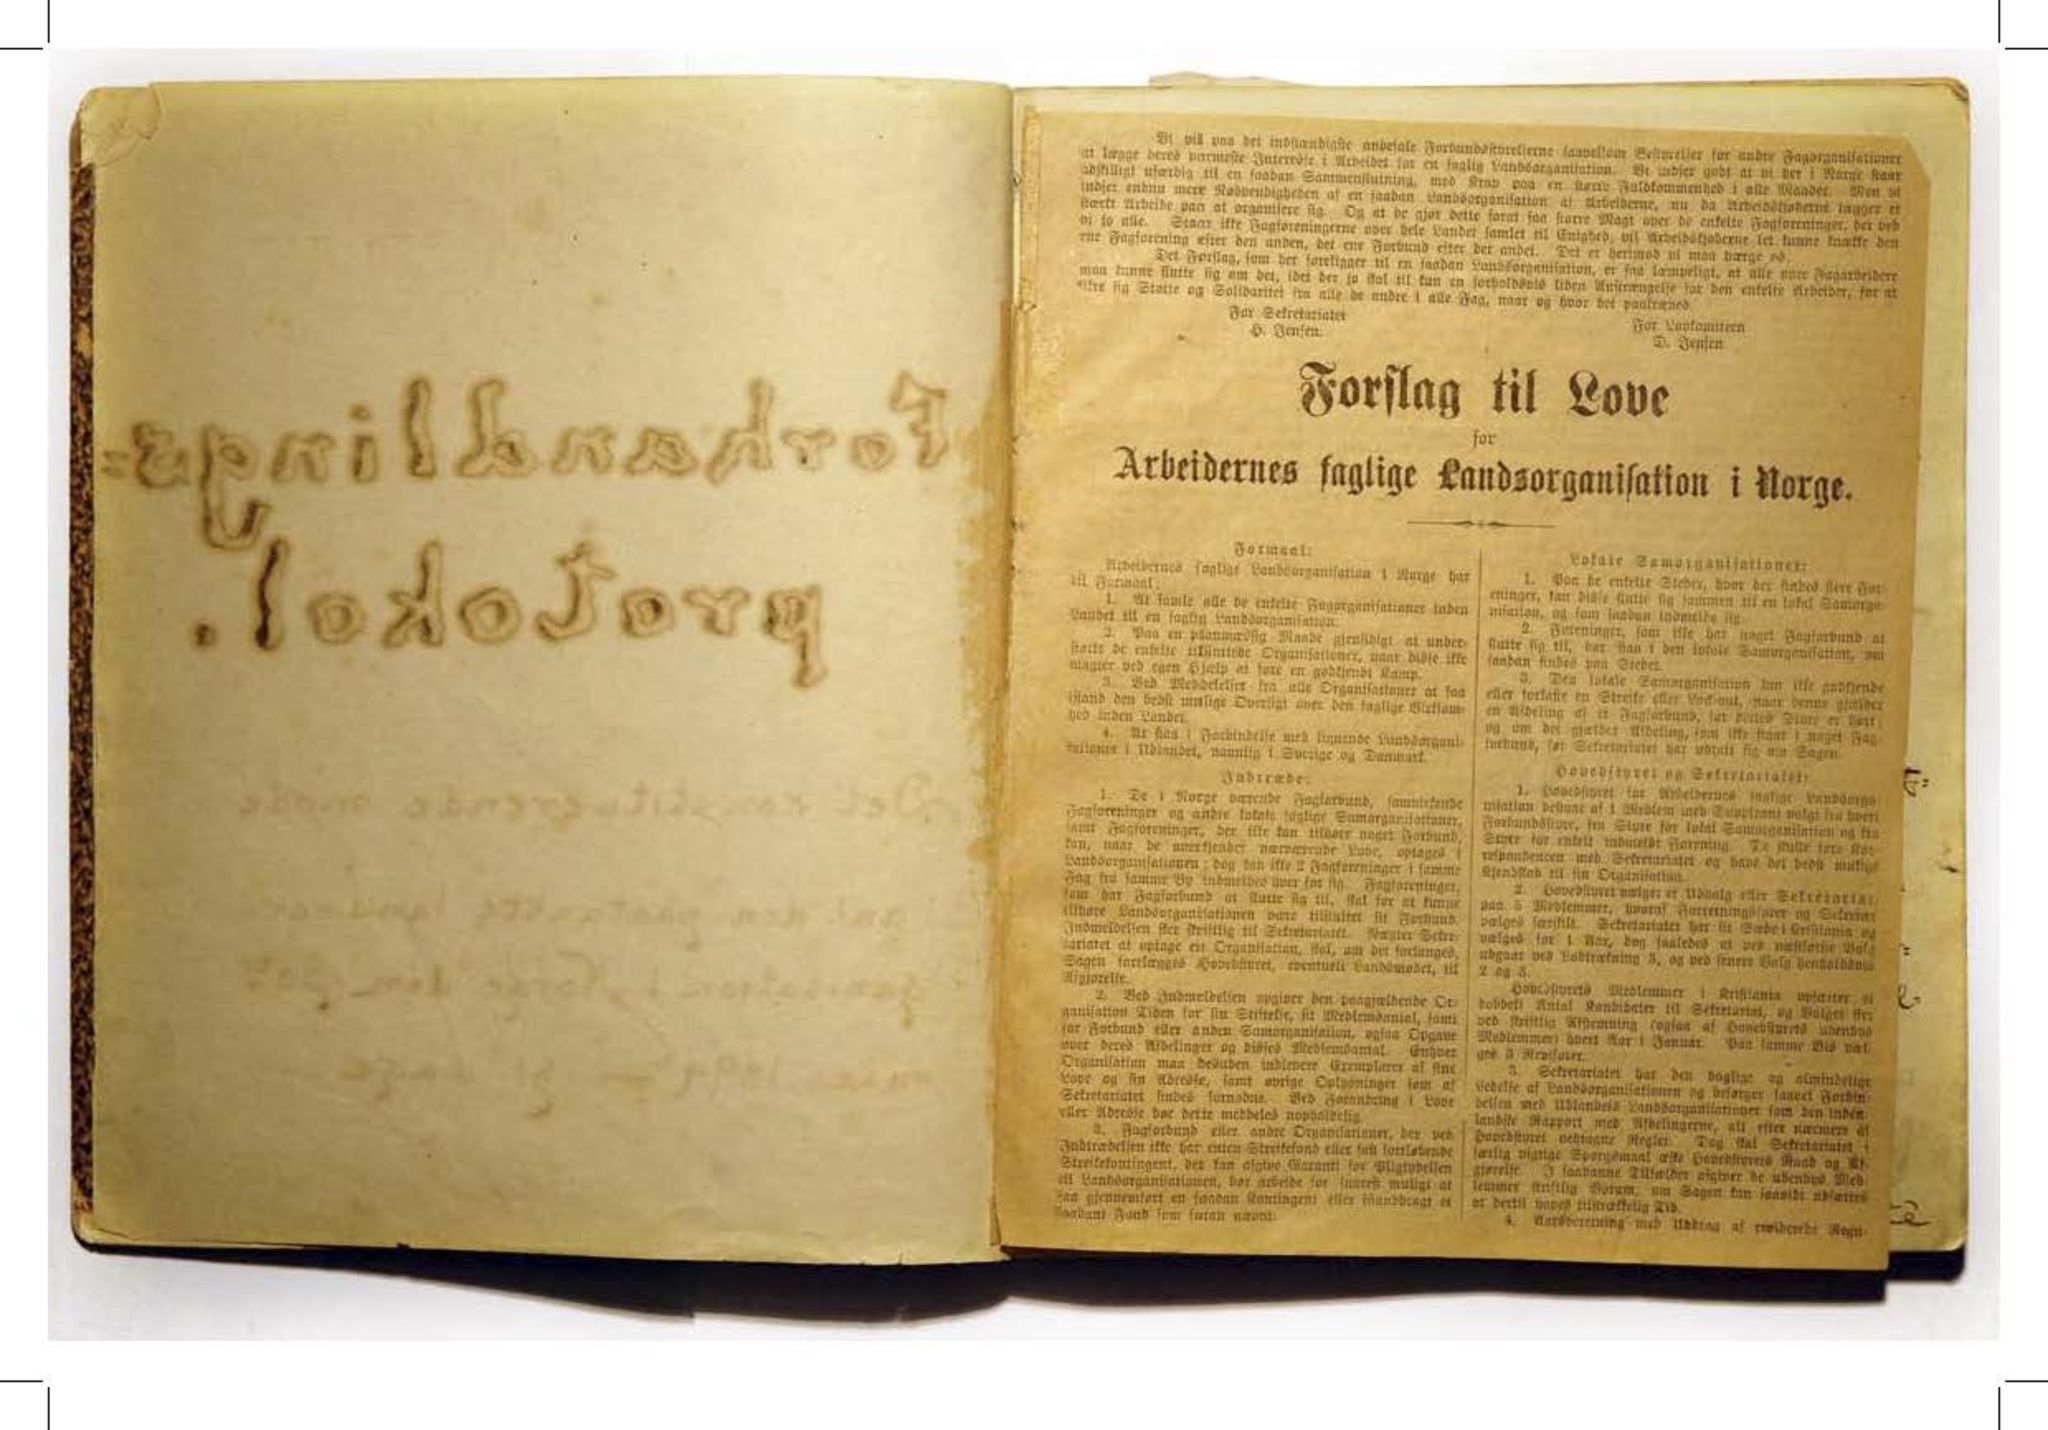 Forhandlings-
protokol.
Det konstituerende møde
Vi vil paa det indstændigste anbefale Forbundsstyrelserne saavelsom Bestyrelser for andre Fagorganisationer
at lægge deres varmeste Interesse i Arbeidet for en faglig Landsorganisation. Vi indser godt at vi her i Norge staar
adskilligt ufærdig til en saadan Sammenslutning, med Krav paa en større Fuldkommenhed i alle Maader. Men vi
indser endnu mere Nødvendigheden af en saadan Landsorganisation af Arbeiderne, nu da Arbeidskjøberne lægger et
stærkt Arbeide paa at organisere sig. Og at de gjør dette forat faa større Magt over de enkelte Fagforeninger, det ved
vi jo alle. Staar ikke Fagforeningerne over hele Landet samlet til Enighed, vil Arbeidskjøberne let kunne knække den
ene Fagforening efter den anden, det ene Forbund efter det andet. Det er herimod vi maa værge os.
Det Forslag, som her foreligger til en saadan Landsorganisation, er saa læmpeligt, at alle vore Fagarbeidere
maa kunne slutte sig om det, idet der jo skal til kun en forholdsvis liden Anstrængelse for den enkelte Arbeider, for at
sikre sig Støtte og Solidaritet fra alle de andre i alle Fag, naar og hvor det paatrænges.
For Sekretariatet
H. Jensen.
For Lovkomiteen
D. Jensen
Forslag til Love
for
Arbeidernes faglige Landsorganisation i Norge.
Formaal:
Arbeidernes faglige Landsorganisation i Norge har
til Formaal:
1. At samle alle de enkelte Fagorganisationer inden
Landet til en faglig Landsorganisation.
2. Paa en planmæssig Maade gjensidigt at under-
støtte de enkelte tilsluttede Organisationer, naar disse ikke
magter ved egen Hjælp at føre en godkjendt Kamp.
3. Ved Meddelelser fra alle Organisationer at faa
istand den bedst mulige Oversigt over den faglige Virksom-
hed inden Landet.
4. At staa i Forbindelse med lignende Landsorgani-
sationer i Udlandet, navnlig i Sverige og Danmark.
Indtræde:
1. De i Norge værende Fagforbund, samvirkende
Fagforeninger og andre lokale faglige Samorganisationer,
samt Fagforeninger, der ikke kan tilhøre noget Forbund,
kan, naar de anerkjender nærværende Love, optages i
Landsorganisationen; dog kan ikke 2 Fagforeninger i samme
Fag fra samme By indmeldes hver for sig. Fagforeninger,
som har Fagforbund at slutte sig til, skal for at kunne
tilhøre Landsorganisationen være tilsluttet sit Forbund.
Indmeldelsen sker skriftlig til Sekretariatet. Nægter Sekre-
tariatet at optage en Organisation, skal, om det forlanges,
Sagen forelægges Hovedstyret, eventuelt Landsmødet, til
Afgjørelse.
2. Ved Indmeldelsen opgiver den paagjældende Or-
ganisation Tiden for sin Stiftelse, sit Medlemsantal, samt
for Forbund eller anden Samorganisation, ogsaa Opgave
over deres Afdelinger og disses Medlemsantal. Enhver
Organisation maa desuden indlevere Exemplarer af sine
Love og sin Adresse, samt øvrige Oplysninger som af
Sekretariatet findes fornødne. Ved Forandring i Love
eller Adresse bør dette meddeles uopholdelig.
3. Fagforbund eller andre Organisationer, der ved
Indtrædelsen ikke har enten Streikefond eller fast fortløbende
Streikekontingent, der kan afgive Garanti for Pligtydelsen
til Landsorganisationen, bør arbeide for snarest muligt at
faa gjennemført en saadan Kontingent eller istandbragt et
saadant Fond som foran nævnt.
Lokale Samorganisationer:
1. Paa de enkelte Steder, hvor der findes flere For-
eninger, kan disse slutte sig sammen til en lokal Samorga-
nisation, og som saadan indmelde sig.
2. Foreninger, som ikke har noget Fagforbund at
slutte sig til, bør staa i den lokale Samorganisation, om
saadan findes paa Stedet.
3. Den lokale Samorganisation kan ikke godkjende
eller forkaste en Streike eller Lock-out, naar denne gjælder
en Afdeling af et Fagforbund, før dettes Styre er hørt;
og om det gjælder Afdeling, som ikke staar i noget Fag-
forbund, før Sekretariatet har udtalt sig om Sagen.
Hovedstyret og Sekretariatet:
1. Hovedstyret for Arbeidernes faglige Landsorga-
nisation bestaar af 1 Medlem med Suppleant valgt fra hvert
Forbundsstyre, fra Styre for lokal Samorganisation og fra
Styre for enkelt indmeldt Forening. De skulle føre Kor-
respondencen med Sekretariatet og have det bedst mulige
Kjendskab til sin Organisation.
2. Hovedstyret vælger et Udvalg eller Sekretariat
paa 5 Medlemmer, hvoraf Forretningsfører og Sekretær
vælges særskilt. Sekretariatet har sit Sæde i Kristiania og
vælges for 1 Aar, dog saaledes at ved næstførste Valg
udgaar ved Lodtrækning 3, og ved senere Valg henholdsvis
2 og 3.
Hovedstyrets Medlemmer i Kristiania opsætter et
dobbelt Antal Kandidater til Sekretariat, og Valget sker
ved skriftlig Afstemning (ogsaa af Hovedstyrets udenbys
Medlemmer) hvert Aar i Januar. Paa samme Vis væl-
ges 3 Revisorer.
3. Sekretariatet har den daglige og almindelige
Ledelse af Landsorganisationen og besørger saavel Forbin-
delsen med Udlandets Landsorganisationer som den inden-
landske Rapport med Afdelingerne, alt efter nærmere af
Hovedstyret vedtagne Regler. Dog skal Sekretariatet i
særlig vigtige Spørgsmaal æske Hovedstyrets Raad og Af-
gjørelse. I saadanne Tilfælder afgiver de udenbys Med-
lemmer skriftlig Votum, om Sagen kan saavidt udsættes
at dertil haves tilstrækkelig Tid.
4. Aarsberetning med Uddrag af reviderede Regn-